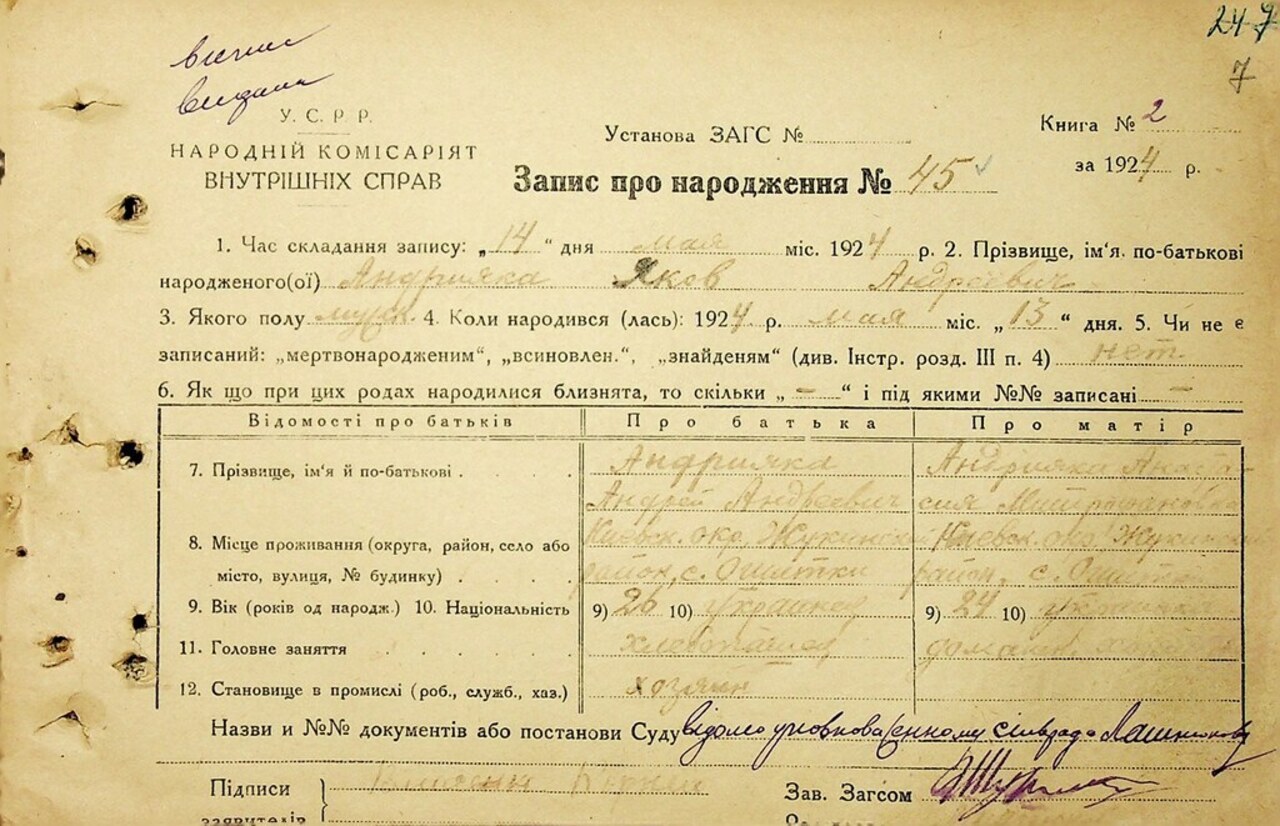 247
7
виписи
видана
У. С. Р. Р.
НАРОДНІЙ КОМІСАРІЯТ
ВНУТРІШНІХ СПРАВ
Установа ЗАГС №
Книга № 2
за 1924 р.
Запис про народження № 45
1. Час складання запису: „14“ дня мая міс. 1924 р. 2. Прізвище, ім'я. по-батькові
народженого(ої) Андрияка Яков Андреевич
3. Якого полу мужск. 4. Коли народився (лась): 1924 р. мая міс. „13“ дня. 5. Чи не є
записаний: „мертвонародженим“, „всиновлен.“, „знайденям“ (див. Інстр. розд. III п. 4) нет
6. Як що при цих родах народилися близнята, то скільки „ – “ і під якими №№ записані –
Відомості про батьків Про батька Про матір
7. Прізвище, ім'я й по-батькові Андрияка Андрияка Анаста-
Андрей Андреевич сия Митрофановна
8. Місце проживання (округа, район, село або Киевск. окр. Жукинский Киевск. окр. Жукинский
місто, вулиця, № будинку) район, с. Ошитки район, с. Ошитки
9. Вік (років од народж.) 10. Національність 9) 26 10) украинец 9) 24 10) украинка
11. Головне заняття хлебопашец домашн.
12. Становище в промислі (роб., служб., хаз.) хозяин
Назви и №№ документів або постанови Суду відомо сільрада
Підписи
заявителів
Зав. Загсом